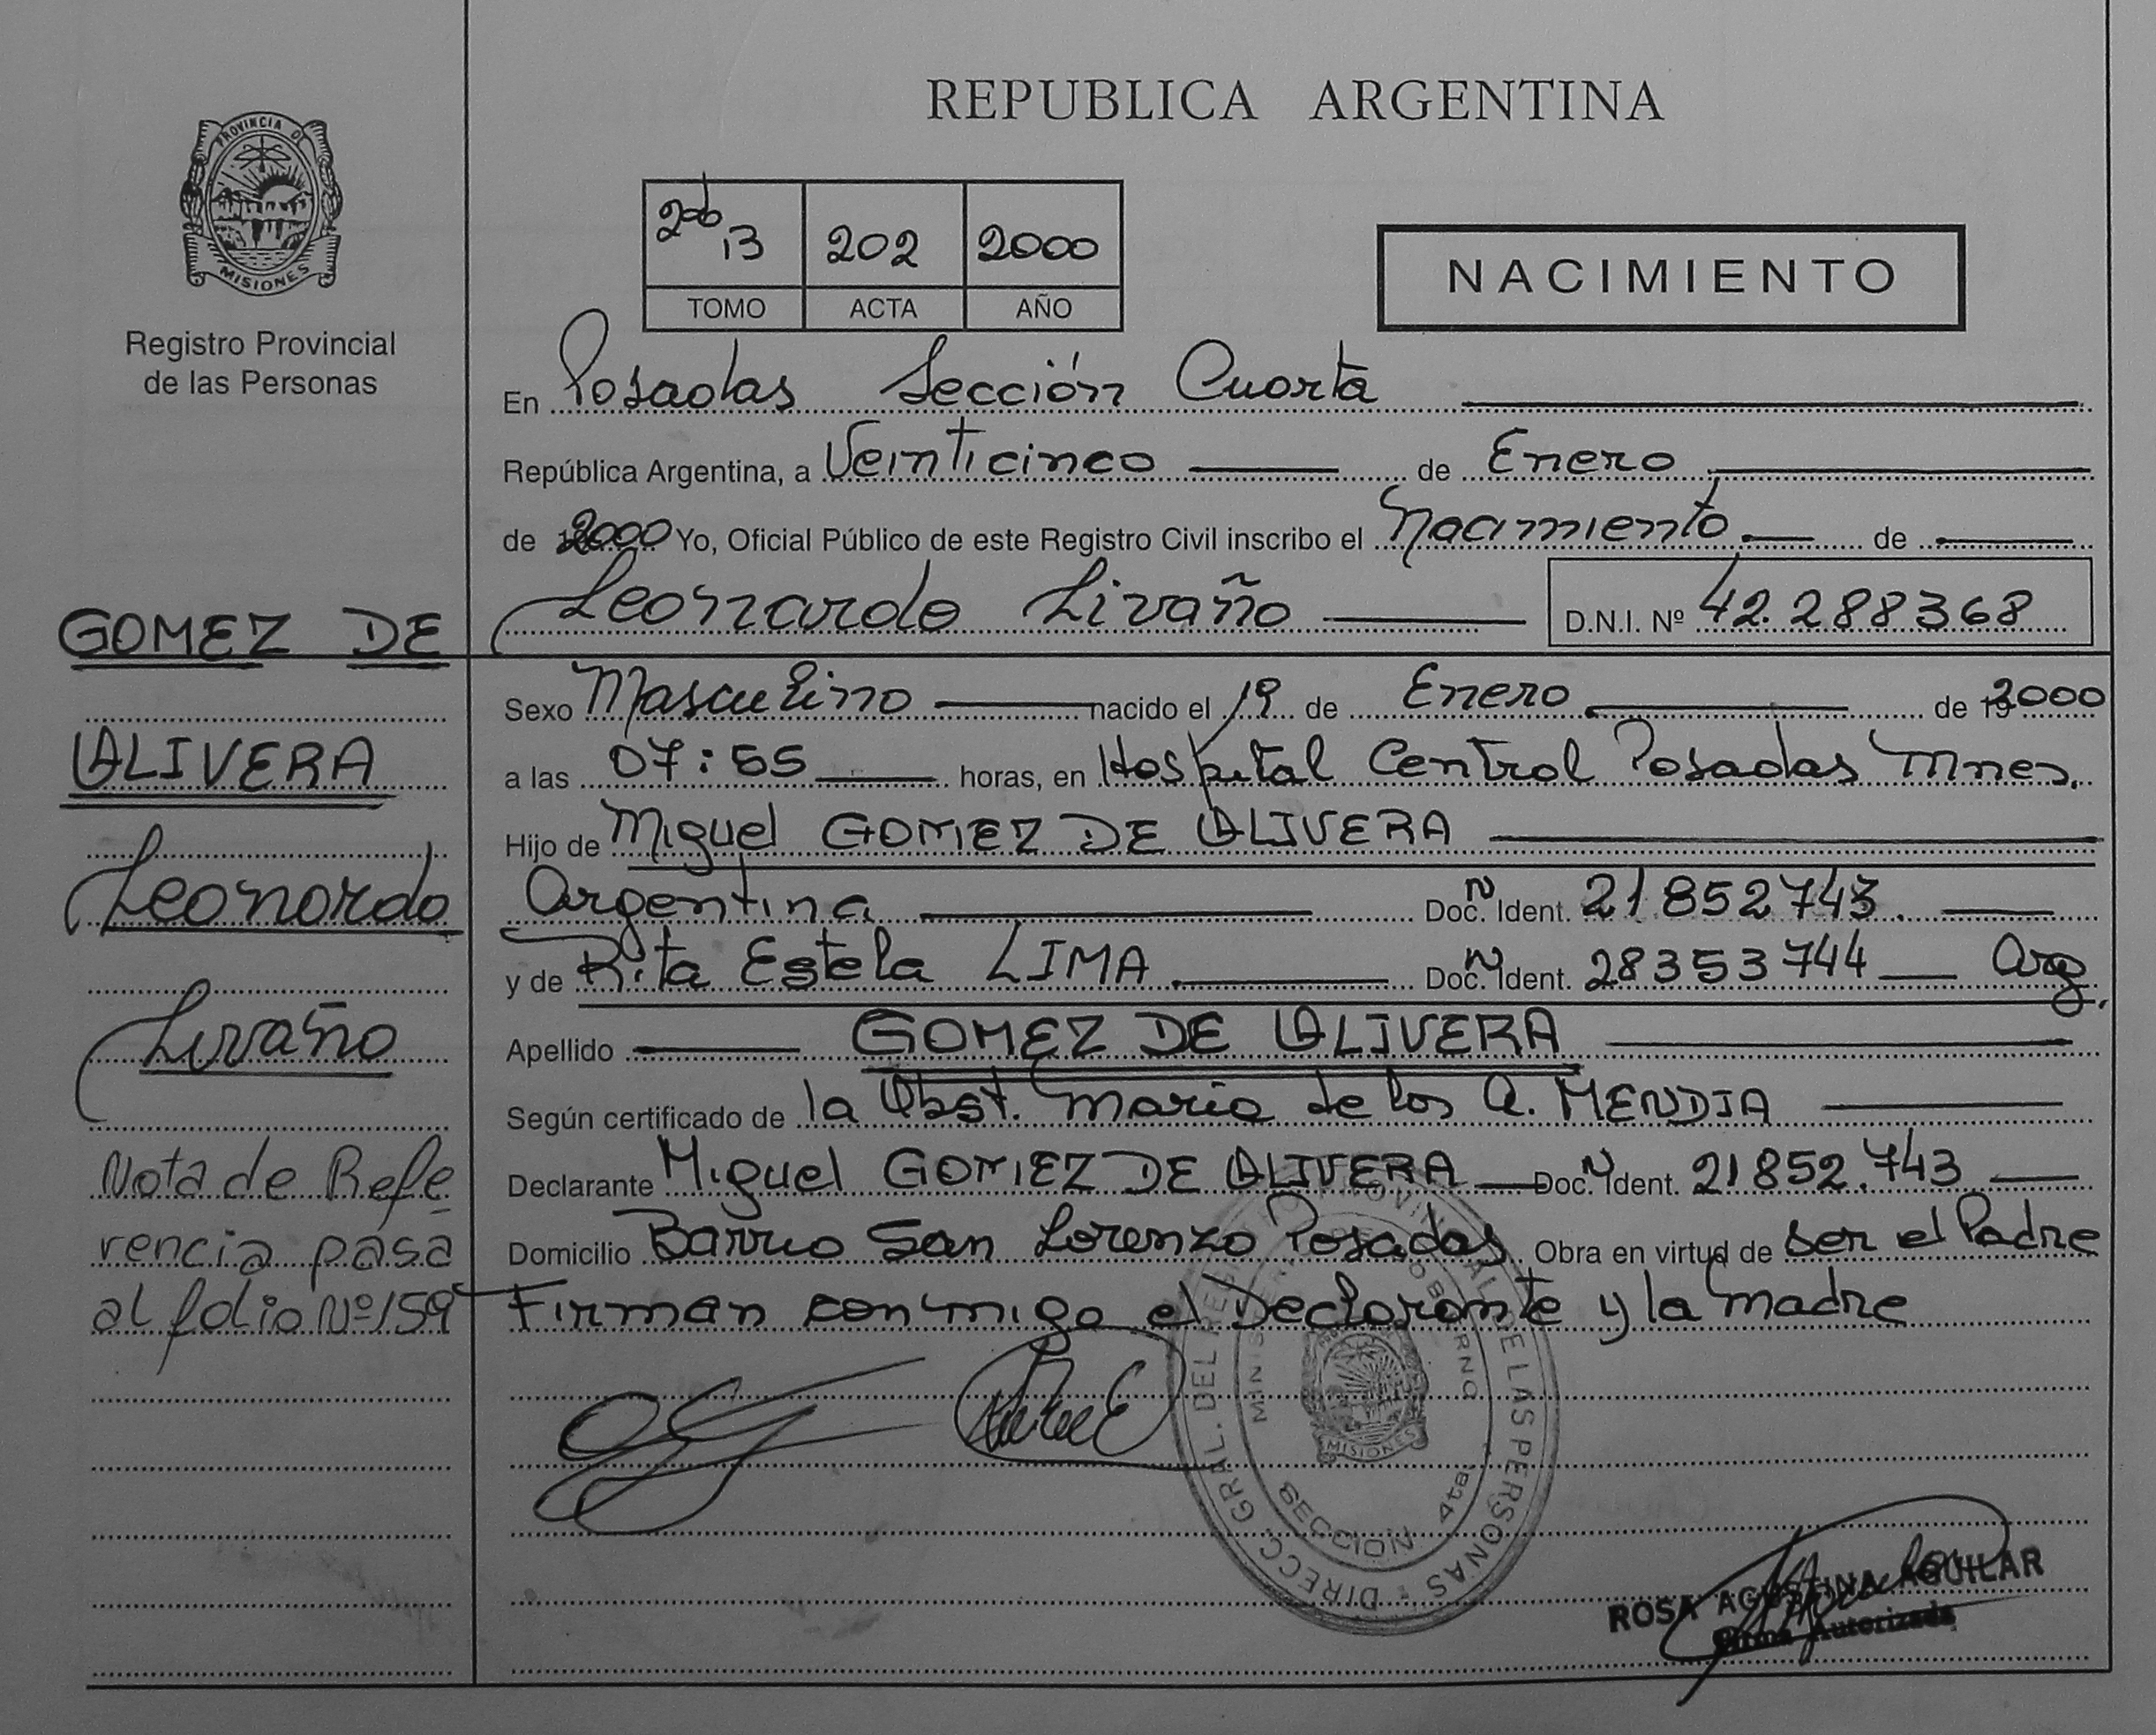 REPUBLICA ARGENTINA
PROVINCIA DE
MISIONES
Registro Provincial
de las Personas
13 202 2000
TOMO ACTA AÑO
NACIMIENTO
En Posadas Sección Cuarta
República Argentina, a Veinticinco de Enero
de 2000 Yo, Oficial Público de este Registro Civil inscribo el Nacimiento de
Leonardo Livaño D.N.I. Nº 42.288368
GOMEZ DE
OLIVERA
Leonardo
Livaño
Nota de Refe
rencia pasa
al folio Nº159
Sexo Masculino nacido el 19 de Enero de 2000
a las 07:55 horas, en Hospital Central Posadas Mnes.
Hijo de Miguel GOMEZ DE OLIVERA
Argentina Doc. Nº Ident. 21852743.
y de Rita Estela LIMA Doc. Nº Ident. 28353744 Arg.
Apellido GOMEZ DE OLIVERA
Según certificado de la Obst. Maria de los A. MENDIA
Declarante Miguel GOMEZ DE OLIVERA Doc. Nº Ident. 21852.743
Domicilio Barrio San Lorenzo Posadas Obra en virtud de ser el Padre
Firman conmigo el Declarante y la Madre
DIRECC. GRAL. DEL REG. PROVINCIAL DE LAS PERSONAS
MINISTERIO DE GOBIERNO
MISIONES
SECCION 4ta.
ROSA AGUSTINA AGUILAR
Firma Autorizada